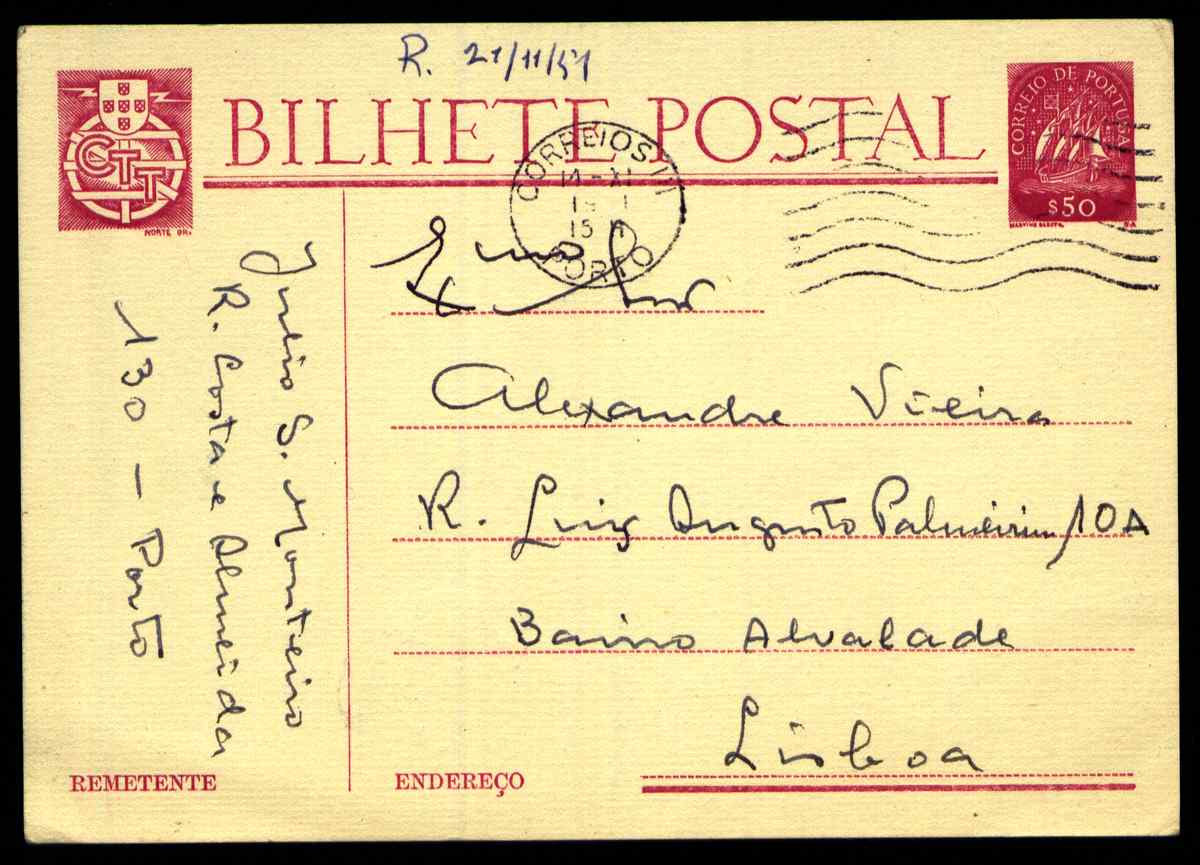 R. 21/11/51
BILHETE POSTAL
CTT
NORTE GR.
CORREIO DE PORTUGAL
$50
CORREIOS
14-XI
15
PORTO
Exmo Snr
Alexandre Vieira
R. Luiz Augusto Palmeirim, 10A
Bairro Alvalade
Lisboa
ENDEREÇO
Julio S. Monteiro
R. Costa e Almeida
130 - Porto
REMETENTE